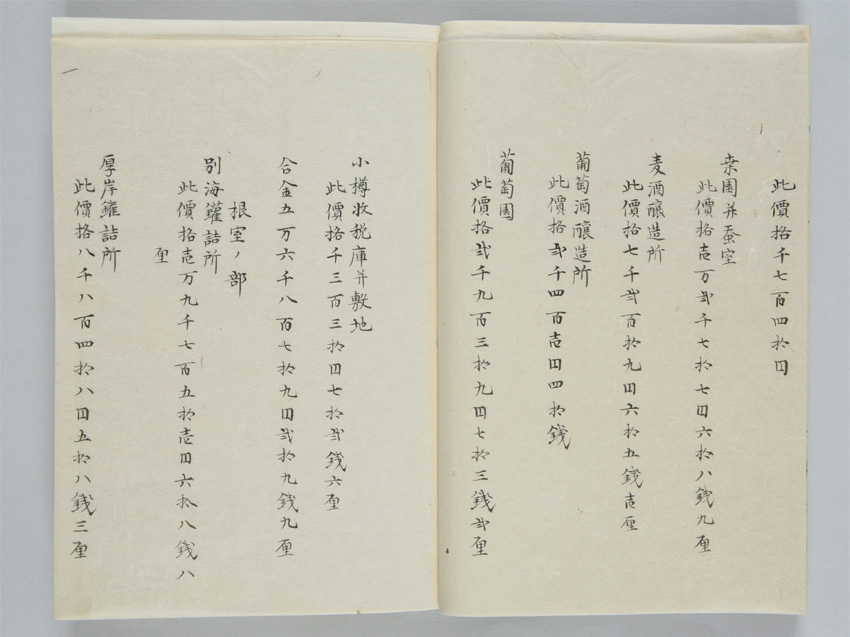 此價格千七百四拾円
桒園并蚕室
此價格壱万弐千七拾七円六拾八銭九厘
麦酒醸造所
此價格七千弐百拾九円六拾五銭壱厘
葡萄酒醸造所
此價格弐千四百壱円四拾銭
葡萄園
此價格弐千九百三拾九円七拾三銭弐厘
小樽收税庫并敷地
此價格千三百三拾四円七拾弐銭六厘
合金五万六千八百七拾九円弐拾九銭九厘
根室ノ部
別海鑵詰所
此價格壱万九千七百五拾壱円六拾八銭八
厘
厚岸鑵詰所
此價格八千八百四拾八円五拾八銭三厘